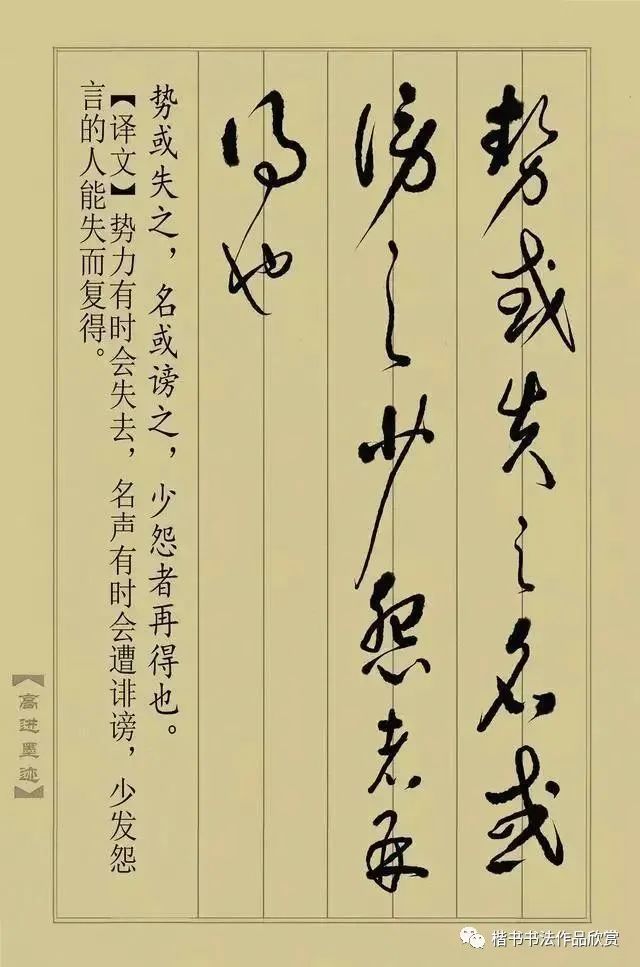 势或失之名或
谤之少怨者再
得也
势或失之，名或谤之，少怨者再得也。
【译文】势力有时会失去，名声有时会遭诽谤，少发怨
言的人能失而复得。
【高进墨迹】
楷书书法作品欣赏